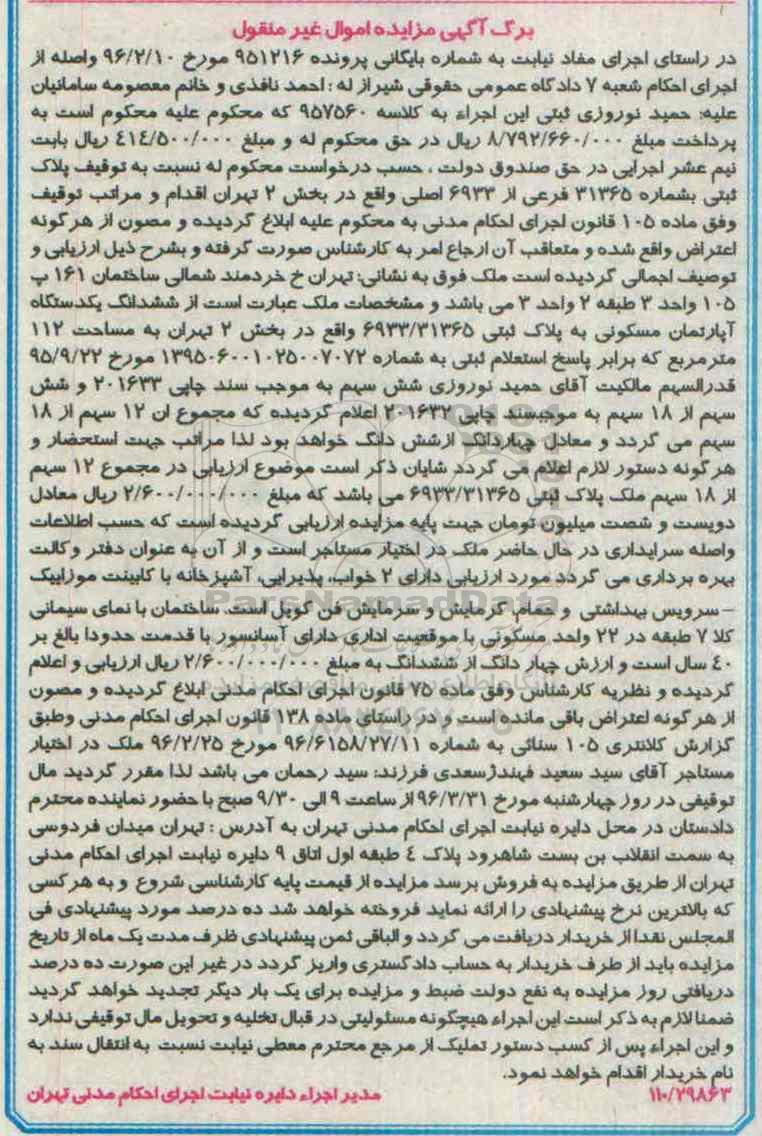 برگ آگهی مزایده اموال غیر منقول
در راستای اجرای مفاد نیابت به شماره بایگانی پرونده ۹۵۱۲۱۶ مورخ ۹۶/۲/۱۰ واصله از
اجرای احکام شعبه ۷ دادگاه عمومی حقوقی شیراز له : احمد نافذی و خانم معصومه سامانیان
علیه: حمید نوروزی ثبتی این اجراء به کلاسه ۹۵۷۵۶۰ که محکوم علیه محکوم است به
پرداخت مبلغ ۸/۷۹۲/۶۶۰/۰۰۰ ریال در حق محکوم له و مبلغ ۴۱۴/۵۰۰/۰۰۰ ریال بابت
نیم عشر اجرایی در حق صندوق دولت ، حسب درخواست محکوم له نسبت به توقیف پلاک
ثبتی بشماره ۳۱۳۶۵ فرعی از ۶۹۳۳ اصلی واقع در بخش ۲ تهران اقدام و مراتب توقیف
وفق ماده ۱۰۵ قانون اجرای احکام مدنی به محکوم علیه ابلاغ گردیده و مصون از هر گونه
اعتراض واقع شده و متعاقب آن ارجاع امر به کارشناس صورت گرفته و بشرح ذیل ارزیابی و
توصیف اجمالی گردیده است ملک فوق به نشانی: تهران خ خردمند شمالی ساختمان ۱۶۱ پ
۱۰۵ واحد ۳ طبقه ۲ واحد ۳ می باشد و مشخصات ملک عبارت است از ششدانگ یکدستگاه
آپارتمان مسکونی به پلاک ثبتی ۶۹۳۳/۳۱۳۶۵ واقع در بخش ۲ تهران به مساحت ۱۱۲
مترمربع که برابر پاسخ استعلام ثبتی به شماره ۱۳۹۵۰۶۰۰۱۰۲۵۰۰۷۰۷۲ مورخ ۹۵/۹/۲۲
قدرالسهم مالکیت آقای حمید نوروزی شش سهم به موجب سند چاپی ۲۰۱۶۳۳ و شش
سهم از ۱۸ سهم به موجبسند چاپی ۲۰۱۶۳۲ اعلام گردیده که مجموع ان ۱۲ سهم از ۱۸
سهم می گردد و معادل چهاردانگ ازشش دانگ خواهد بود لذا مراتب جهت استحضار و
هر گونه دستور لازم اعلام می گردد شایان ذکر است موضوع ارزیابی در مجموع ۱۲ سهم
از ۱۸ سهم ملک پلاک ثبتی ۶۹۳۳/۳۱۳۶۵ می باشد که مبلغ ۲/۶۰۰/۰۰۰/۰۰۰ ریال معادل
دویست و شصت میلیون تومان جهت پایه مزایده ارزیابی گردیده است که حسب اطلاعات
واصله سرایداری در حال حاضر ملک در اختیار مستاجر است و از آن به عنوان دفتر وکالت
بهره برداری می گردد مورد ارزیابی دارای ۲ خواب، پذیرایی، آشپزخانه با کابینت موزاییک
– سرویس بهداشتی و حمام، گرمایش و سرمایش فن کویل است. ساختمان با نمای سیمانی
کلا ۷ طبقه در ۲۲ واحد مسکونی با موقعیت اداری دارای آسانسور با قدمت حدودا بالغ بر
۴۰ سال است و ارزش چهار دانگ از ششدانگ به مبلغ ۲/۶۰۰/۰۰۰/۰۰۰ ریال ارزیابی و اعلام
گردیده و نظریه کارشناس وفق ماده ۷۵ قانون اجرای احکام مدنی ابلاغ گردیده و مصون
از هر گونه اعتراض باقی مانده است و در راستای ماده ۱۳۸ قانون اجرای احکام مدنی وطبق
گزارش کلانتری ۱۰۵ سنائی به شماره ۹۶/۶۱۵۸/۲۷/۱۱ مورخ ۹۶/۲/۲۵ ملک در اختیار
مستاجر آقای سید سعید قهندژسعدی فرزند: سید رحمان می باشد لذا مقرر گردید مال
توقیفی در روز چهارشنبه مورخ ۹۶/۳/۳۱ از ساعت ۹ الی ۹/۳۰ صبح با حضور نماینده محترم
دادستان در محل دایره نیابت اجرای احکام مدنی تهران به آدرس : تهران میدان فردوسی
به سمت انقلاب بن بست شاهرود پلاک ۴ طبقه اول اتاق ۹ دایره نیابت اجرای احکام مدنی
تهران از طریق مزایده به فروش برسد مزایده از قیمت پایه کارشناسی شروع و به هر کسی
که بالاترین نرخ پیشنهادی را ارائه نماید فروخته خواهد شد ده درصد مورد پیشنهادی فی
المجلس نقدا از خریدار دریافت می گردد و الباقی ثمن پیشنهادی ظرف مدت یک ماه از تاریخ
مزایده باید از طرف خریدار به حساب دادگستری واریز گردد در غیر این صورت ده درصد
دریافتی روز مزایده به نفع دولت ضبط و مزایده برای یک بار دیگر تجدید خواهد گردید
ضمنا لازم به ذکر است این اجراء هیچگونه مسئولیتی در قبال تخلیه و تحویل مال توقیفی ندارد
و این اجراء پس از کسب دستور تملیک از مرجع محترم معطی نیابت نسبت به انتقال سند به
نام خریدار اقدام خواهد نمود.
۱۱۰/۲۹۸۶۳ مدیر اجراء دایره نیابت اجرای احکام مدنی تهران
ParsNamadData